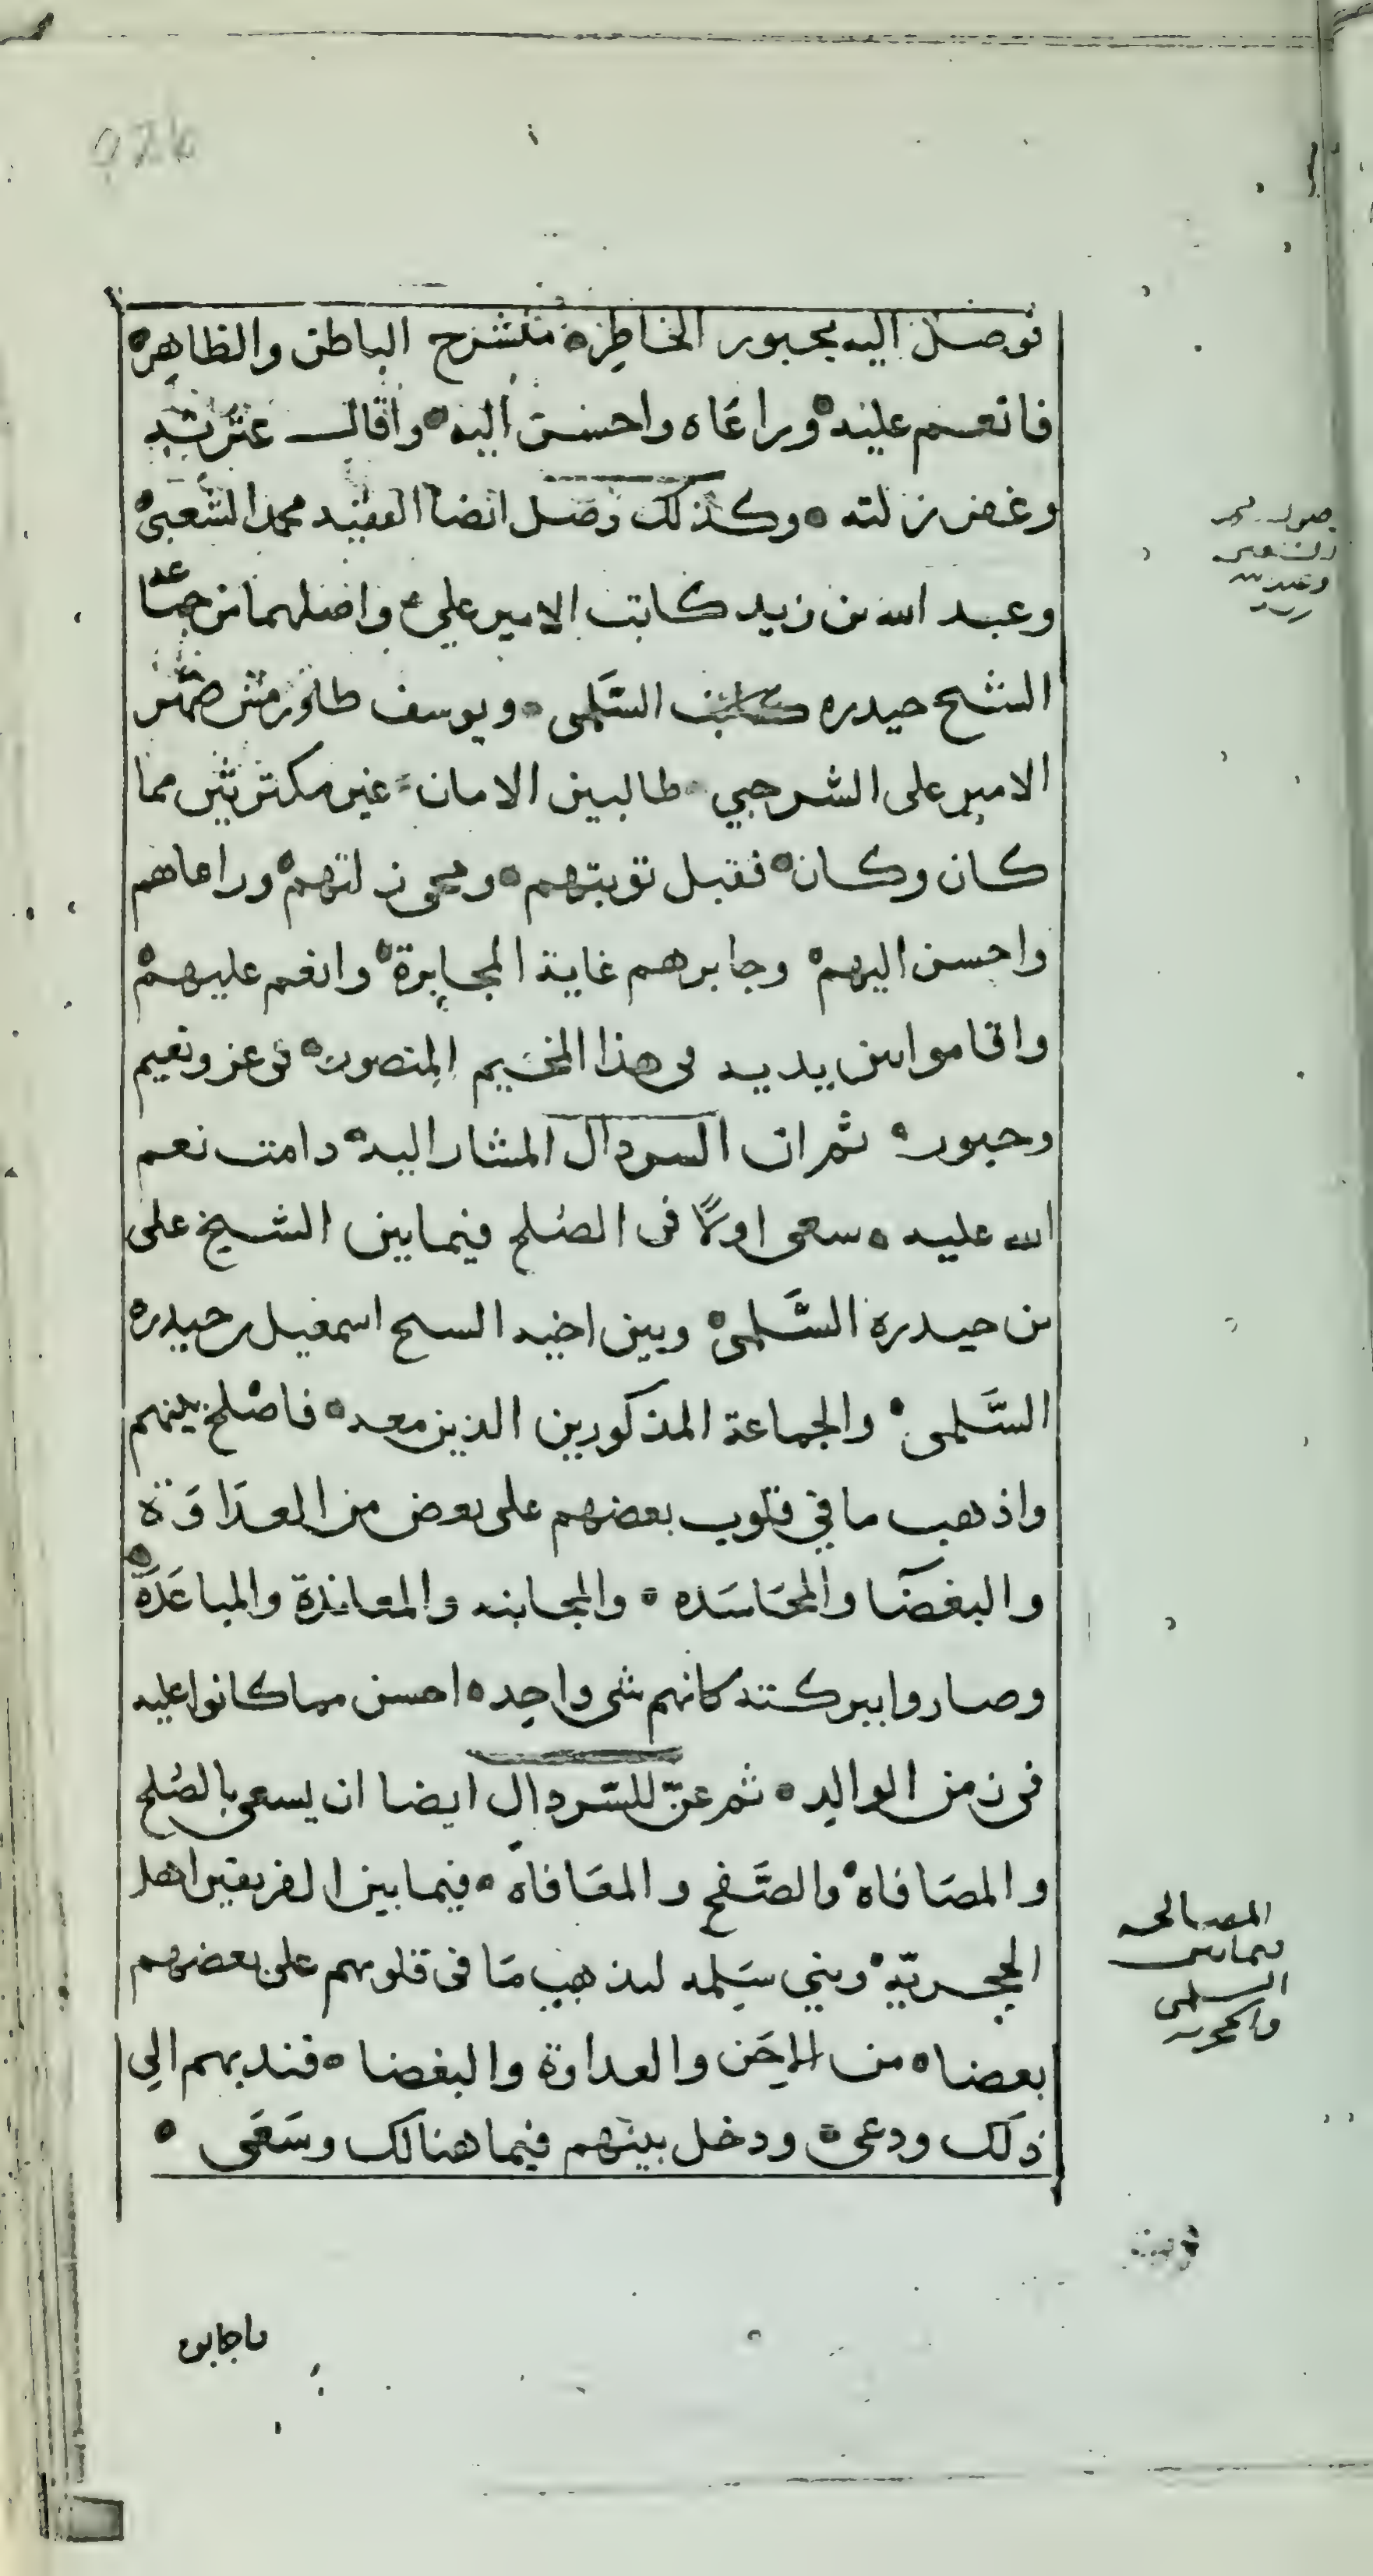 توصل اليه مجبور الخاطر ه منشرح الباطن والظاهر ه
فانعم عليه ه وراعاه واحسن اليه ه واقال عثرته
وغفر زلته ه وكذلك وصل ايضا الفقيه محمد الشعبي ه
وعبد الله بن زيد كاتب الامير علي ه واصلهما من جماعة
الشيخ حيدره السَّلمى ه ويوسف
الامير على الشرجبي ه طالبين الامان ه غير مكترثين مما
كان وكان ه فقبل توبتهم ه ومحى زلتهم ه وراعاهم
واحسن اليهم ه وجابرهم غاية المجابرة ه وانعم عليهم ه
واقاموا بين يديه في هذا المخيم المنصور ه في عز ونعيم
وحبور ه ثم ان السردال المشار اليه ه دامت نعم
الله عليه ه سعى اولاً فى الصُلح فيما بين الشيخ على
بن حيدرة السَّلمى ه وبين اخيه السح اسمعيل بن حيدره
السَّلمى ه والجماعة المذكورين الذين معه ه فاصْلح بينهم
واذهب ما في قلوب بعضهم على بعض من العدَاوَة
والبغضا والمحَاسَده ه والمجانبه والمعاندة والمباعَدَة ه
وصاروا ببركته كانهم شى واحِد ه احسن مما كانوا عليه
فى زمن الوالِد ه ثم عنّ للسّردال ايضا ان يسعى بالصُلح
والمصَافاة ه والصَّفح والمعَافاة ه فيما بين الفريقين اهل
الحجريّه ه وبني سَلِمه ليذهب مَا فى قلوبهم على بعضهم
بعضا ه من الاِحَن والعداوة والبغضا ه فندبهم الِى
ذلَك ودعى ه ودخل بينهم فيما هنالك وسَعَى ه
المصالحه
فيما بين
السلمى
والحجريه
فاجابوا